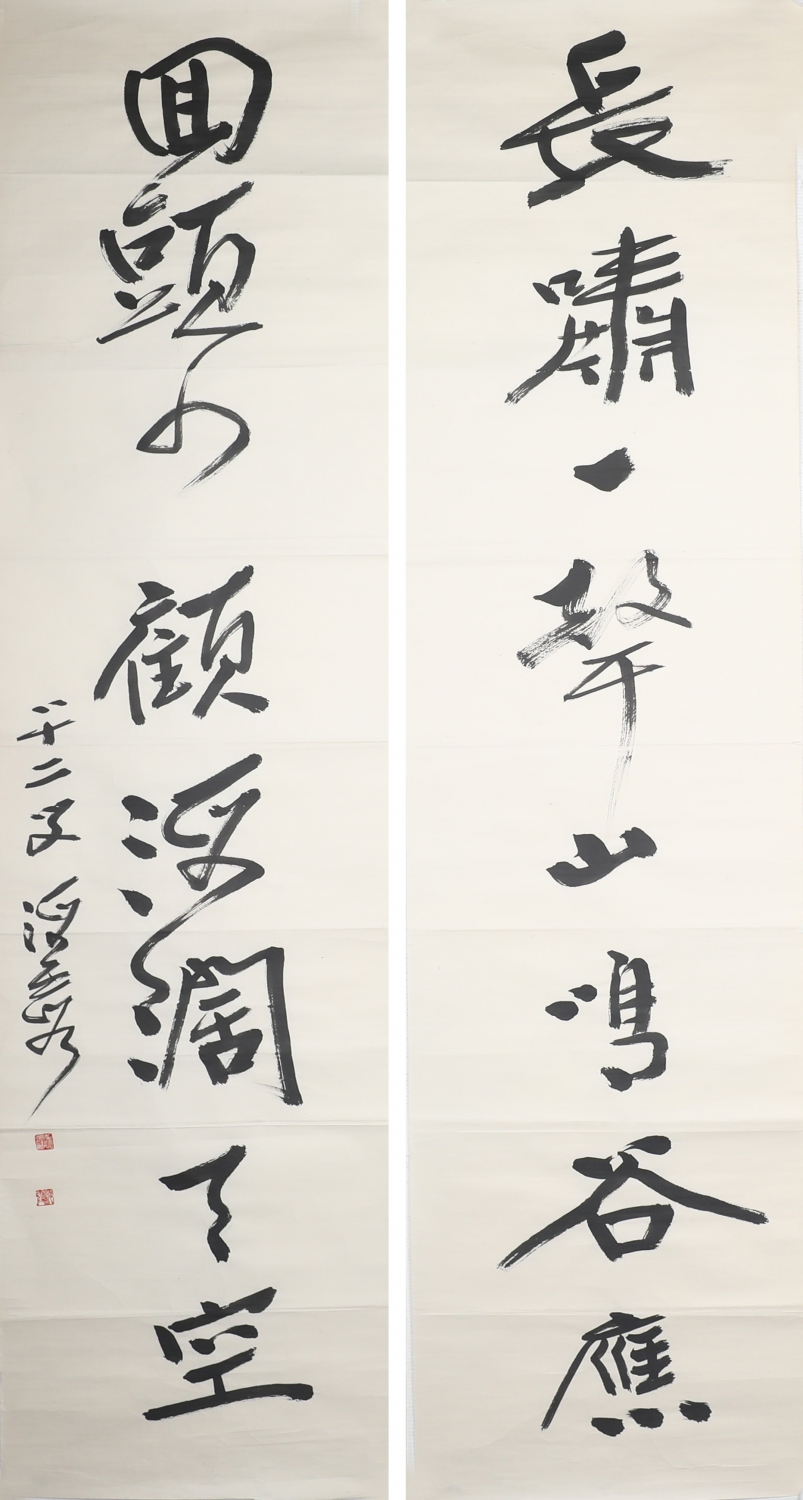 長嘯一聲山鳴谷應
回頭四顧海闊天空
八十二叟